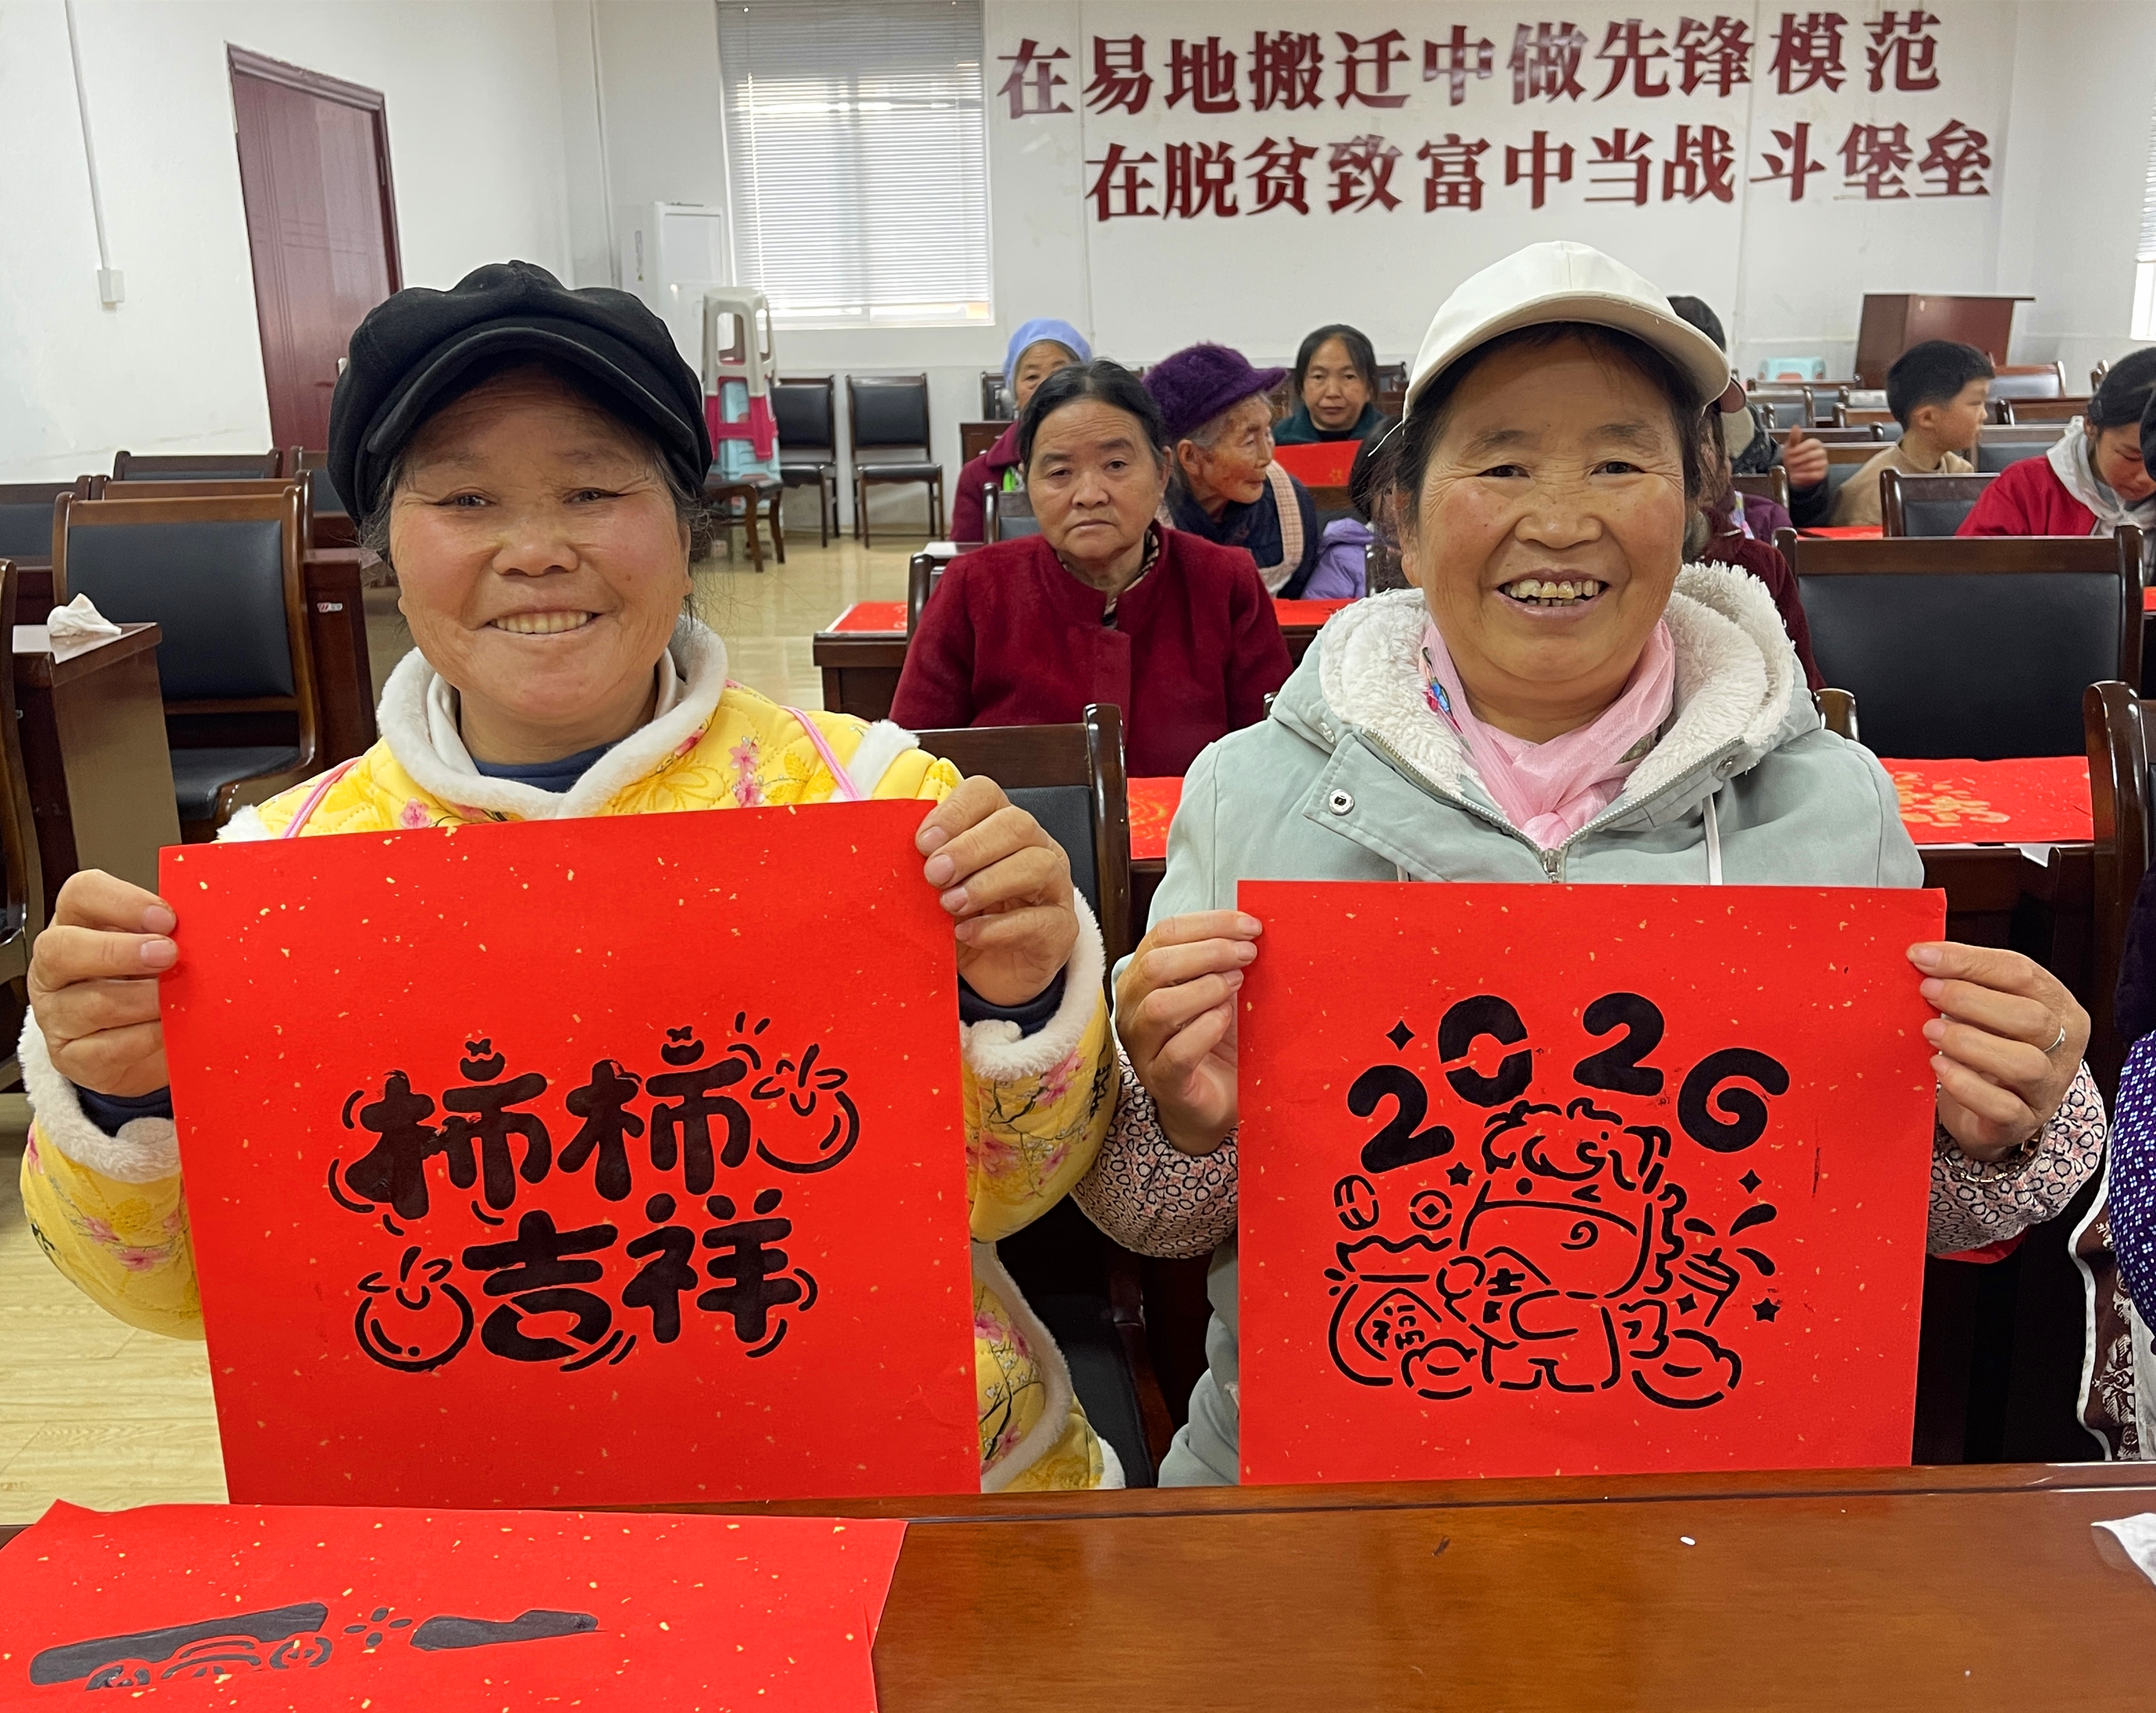 在易地搬迁中做先锋模范
在脱贫致富中当战斗堡垒
柿柿
吉祥
2026
福
吉